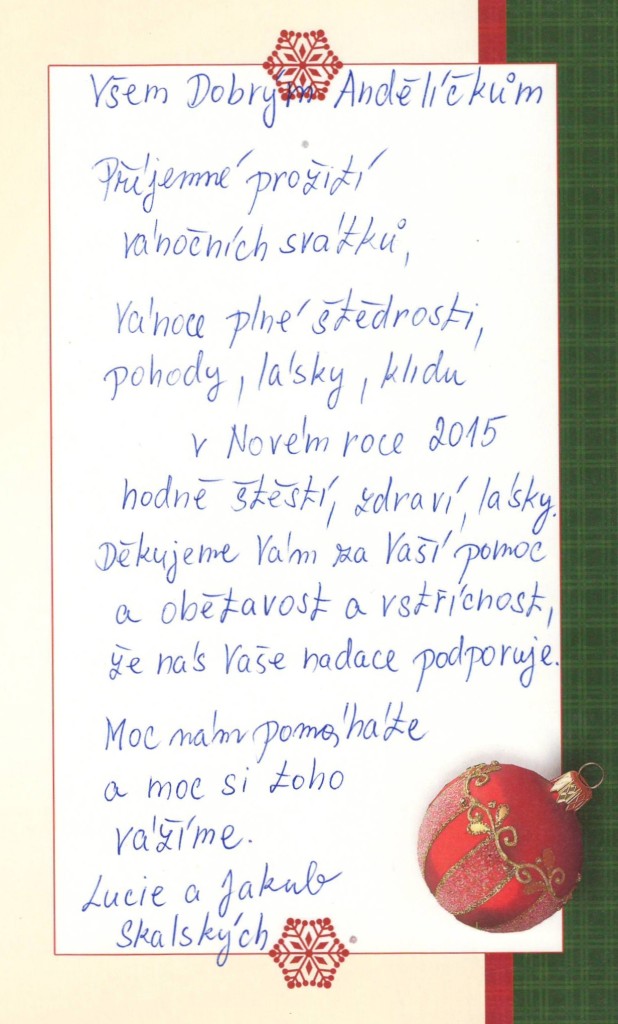 Všem Dobrým Andělíčkům
Příjemné prožití
vánočních svátků,
Vánoce plné štědrosti,
pohody, lásky, klidu
v Novém roce 2015
hodně štěstí, zdraví, lásky.
Děkujeme Vám za Vaší pomoc
a obětavost a vstřícnost,
že nás Vaše nadace podporuje.
Moc nám pomáháte
a moc si toho
vážíme.
Lucie a Jakub
Skalských